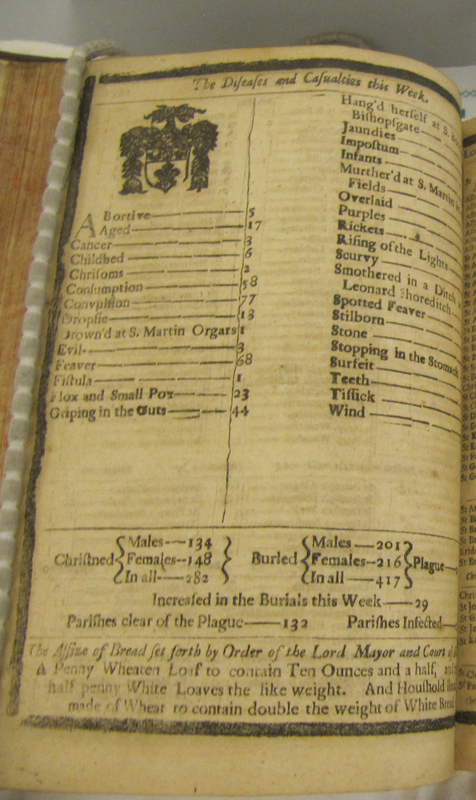 The Diseases and Casualties this Week.
ABortive 5
Aged 17
Cancer 3
Childbed 6
Chrisoms 2
Consumption 58
Convulsion 77
Dropsie 13
Drown'd at S. Martin Orgars 1
Evil 3
Feaver 68
Fistula 1
Flox and Small Pox 23
Griping in the Guts 44
Hang'd herself at S.
Bishopsgate
Jaundies
Impostum
Infants
Murther'd at S. Martin
Fields
Overlaid
Purples
Rickets
Rising of the Lights
Scurvy
Smothered in a Ditch
Leonard Shoreditch
Spotted Feaver
Stilborn
Stone
Stopping in the Stomach
Surfeit
Teeth
Tissick
Wind
Christned { Males 134 Females 148 In all 282 }
Buried { Males 201 Females 216 In all 417 } Plague
Increased in the Burials this Week 29
Parishes clear of the Plague 132 Parishes Infected
The Assize of Bread set forth by Order of the Lord Mayor and Court of
A Penny Wheaten Loaf to contain Ten Ounces and a half,
half penny White Loaves the like weight. And Houshold
made of Wheat to contain double the weight of White Bread